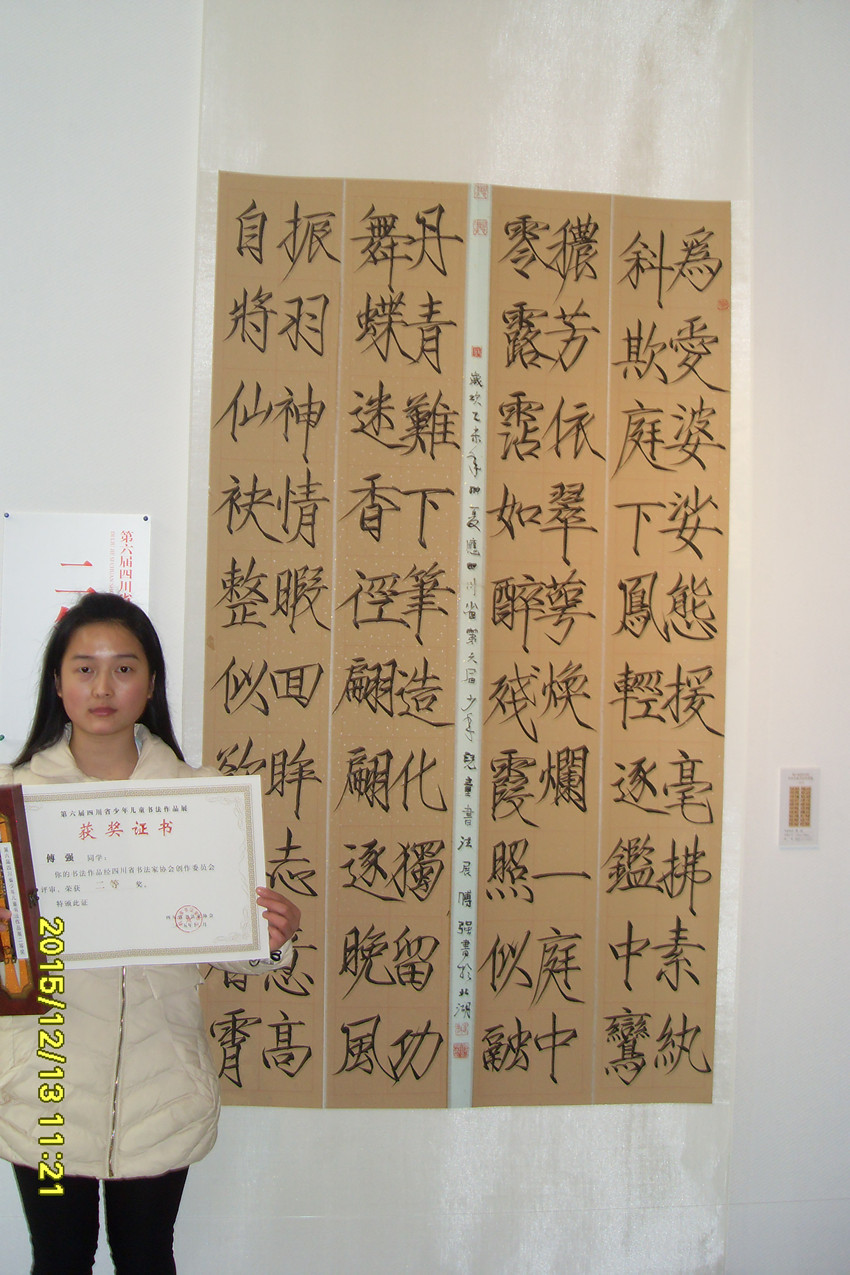 為愛婆娑態援毫拂素紈
斜欺庭下鳳輕逐鑑中鸞
穠芳依翠萼煥爛一庭中
零露霑如醉殘霞照似融
歲次乙未年仲夏應四川省第六届少年兒童書法展傅强書於北湖
丹青難下筆造化獨留功
舞蝶迷香徑翩翩逐晚風
振羽神情暇回眸志意高
自將仙袂整似欲霄
第六届四川省
二
第六届四川省少年儿童书法作品展
获奖证书
傅强 同学：
你的书法作品经四川省书法家协会创作委员会
评审，荣获 二等 奖。
特颁此证
2015/12/13 11:21